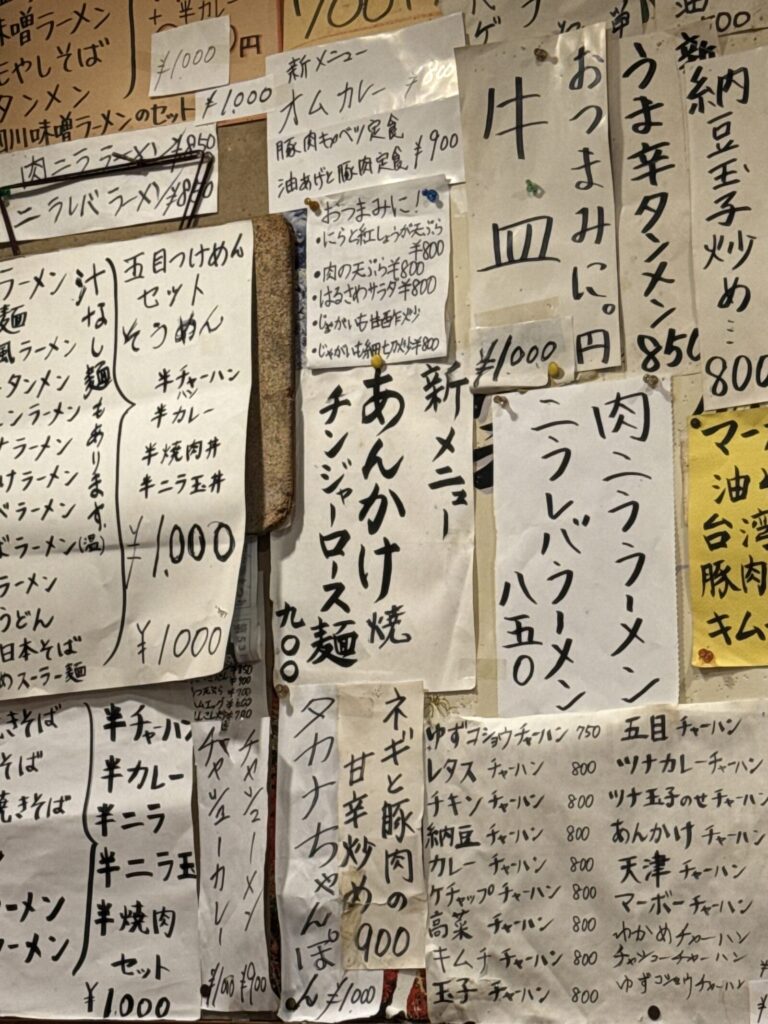 味噌ラーメン
もやしそば
タンメン
味噌ラーメンのセット ¥1,000
半カレー
¥1,000
円
肉ニララーメン ¥850
ニラレバラーメン ¥850
新メニュー
オムカレー ¥800
豚肉もやしキャベツ定食
油あげと豚肉定食 ¥900
おつまみに!
・にらと紅しょうが天ぷら
¥800
・肉の天ぷら¥800
・はるさめサラダ¥800
・じゃがいも細切り炒め¥800
おつまみに。
牛皿
円
¥1,000
うま辛タンメン
850
新
納豆玉子炒め…
800
ラーメン
麺
風ラーメン
タンメン
ラーメン
ラーメン
ラーメン
ラーメン
ラーメン(温)
ラーメン
うどん
日本そば
スーラー麺
汁なし麺もあります。
五目つけめん
セット
そうめん
半チャーハン
半カレー
半焼肉丼
半ニラ玉丼
¥1,000
¥1000
新メニュー
あんかけ焼
チンジャーロース麺
九〇〇
肉ニララーメン
ニラレバラーメン
八五〇
油
台湾
豚肉
キム
焼きそば
そば
焼きそば
ラーメン
ラーメン
半チャーハン
半カレー
半ニラ
半ニラ玉
半焼肉
セット
¥1,000
チャシューメン
¥900
チャシューカレー
¥1,000
タカナちゃんぽん
¥1,000
ネギと豚肉の
甘辛炒め
900
ゆずコショウチャーハン 750
レタス チャーハン 800
チキン チャーハン 800
納豆 チャーハン 800
カレー チャーハン 800
ケチャップチャーハン 800
高菜 チャーハン 800
キムチ チャーハン 800
玉子 チャーハン 800
五目 チャーハン
ツナカレーチャーハン
ツナ玉子のせチャーハン
あんかけ チャーハン
天津 チャーハン
マーボー チャーハン
わかめチャーハン
チャシューチャーハン
ゆずコショウチャーハン